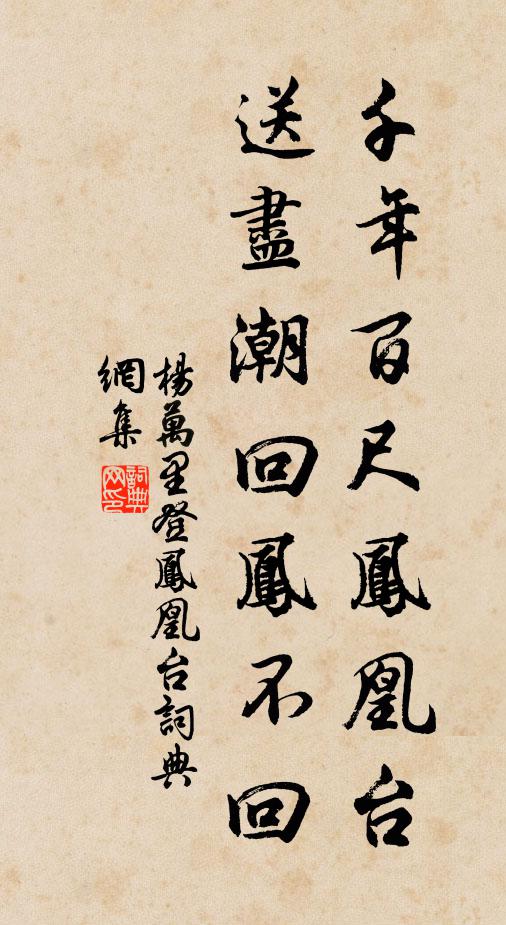 千年百尺鳳凰台
送盡潮回鳳不回
楊萬里登鳳凰台詞典
網集
詞典
网印